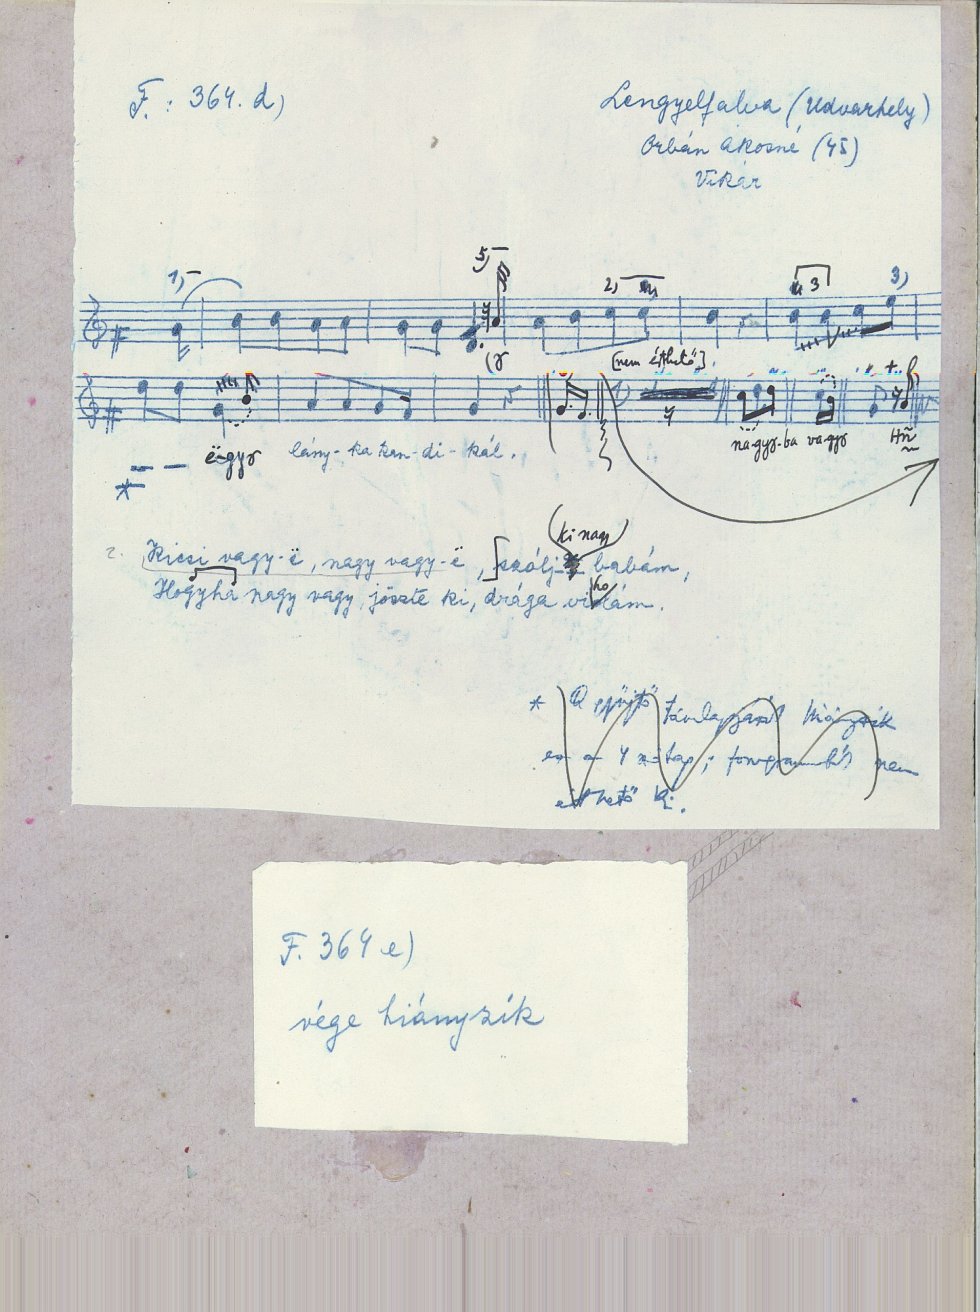 F. 364. d)
Lengyelfalva (Udvarhely)
Orbán Ákosné (45)
Vikár
1,
5,
2,
3
3)
[nem érthető]
ëgyr lány-ka kan-di-kál. nagyr-ba vagyr
*
2. Kicsi vagy-ë, nagy vagy-ë, szólj babám,
ki nagy
Hogyha nagy vagy, jöszte ki, drága violám.
ho
* A gyűjtő hiányzik
a 4 nem
érthető ki.
F. 364 e)
vége hiányzik